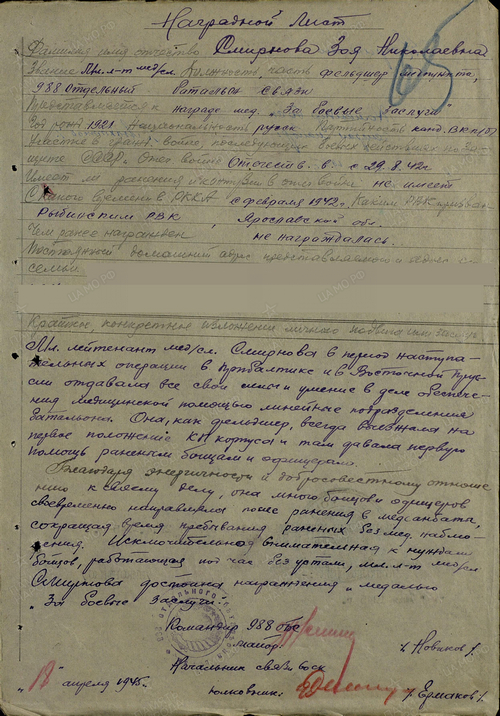 Наградной Лист
65
Фамилия имя отчество Смирнова Зоя Николаевна
Звание Мл. л-т мед/сл. Должность, часть фельдшер медпункта,
988 Отдельный Батальон связи
Представляется к награде мед. "За боевые заслуги"
Год рожд. 1921. Национальность русск. Партийность канд. ВКП/б/
Участие в гражд. войне, последующих боевых действиях по за-
щите СССР. Отеч. войне Отечеств. в. с 29.8.42г.
Имеет ли ранения и контузии в отеч. войне не имеет
С какого времени в РККА с февраля 1942г. Каким РВК призван
Рыбинским РВК, Ярославской обл.
Чем ранее награжден не награждалась.
Постоянный домашний адрес представляемого и адрес его
семьи.
Краткое, конкретное изложение личного подвига или заслуг
Мл. лейтенант мед/сл. Смирнова в период наступа-
тельных операций в Прибалтике и в Восточной Прус-
сии отдавала все свои силы и умение в деле обеспече-
ния медицинской помощью линейные подразделения
батальона. Она, как фельдшер, всегда выезжала на
первое положение КП корпуса и там давала первую
помощь раненым бойцам и офицерам.
Благодаря энергичности и добросовестному отноше-
нию к своему делу, она много бойцов и офицеров
своевременно направляла после ранения в медсанбата,
сокращая время пребывания раненых без мед. наблю-
дения. Исключительно внимательная к нуждам
бойцов, работающая под час без устали, мл. л-т мед/сл
Смирнова достойна награждения медалью
"За боевые заслуги".
Командир 988 обс
майор: /Новиков/.
Начальник связи
полковник: /Ермаков/.
"18" апреля 1945г.